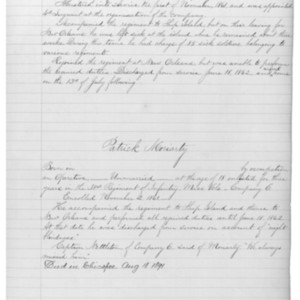 Mustered into service the first of November 1861 and was appointed
4th Sergeant at the organization of the Company.
Accompanied the regiment to Ship Island, but on their leaving for
New Orleans he was left sick at the island where he remained about three
weeks. During the time he had charge of 25 sick soldiers belonging to
various regiments.
Rejoined the regiment at New Orleans, but was unable to perform
the required duties. Discharged from service June 18, 1862, and
on the 23rd of July following
Patrick Moriarty
Born in by occupation
an Operative Unmarried at the age of 18 enlisted in three
years in the Regiment of Infantry, Mass. Vols. Company C.
Enrolled November 1861
He accompanied the regiment to Ship Island and thence to
New Orleans and performed all required duties until June 18, 1862.
At that date he was discharged from service on account of "night
blindness"
Captain of Company C said of Moriarty "He always
Died in Chicopee Aug 19 1890